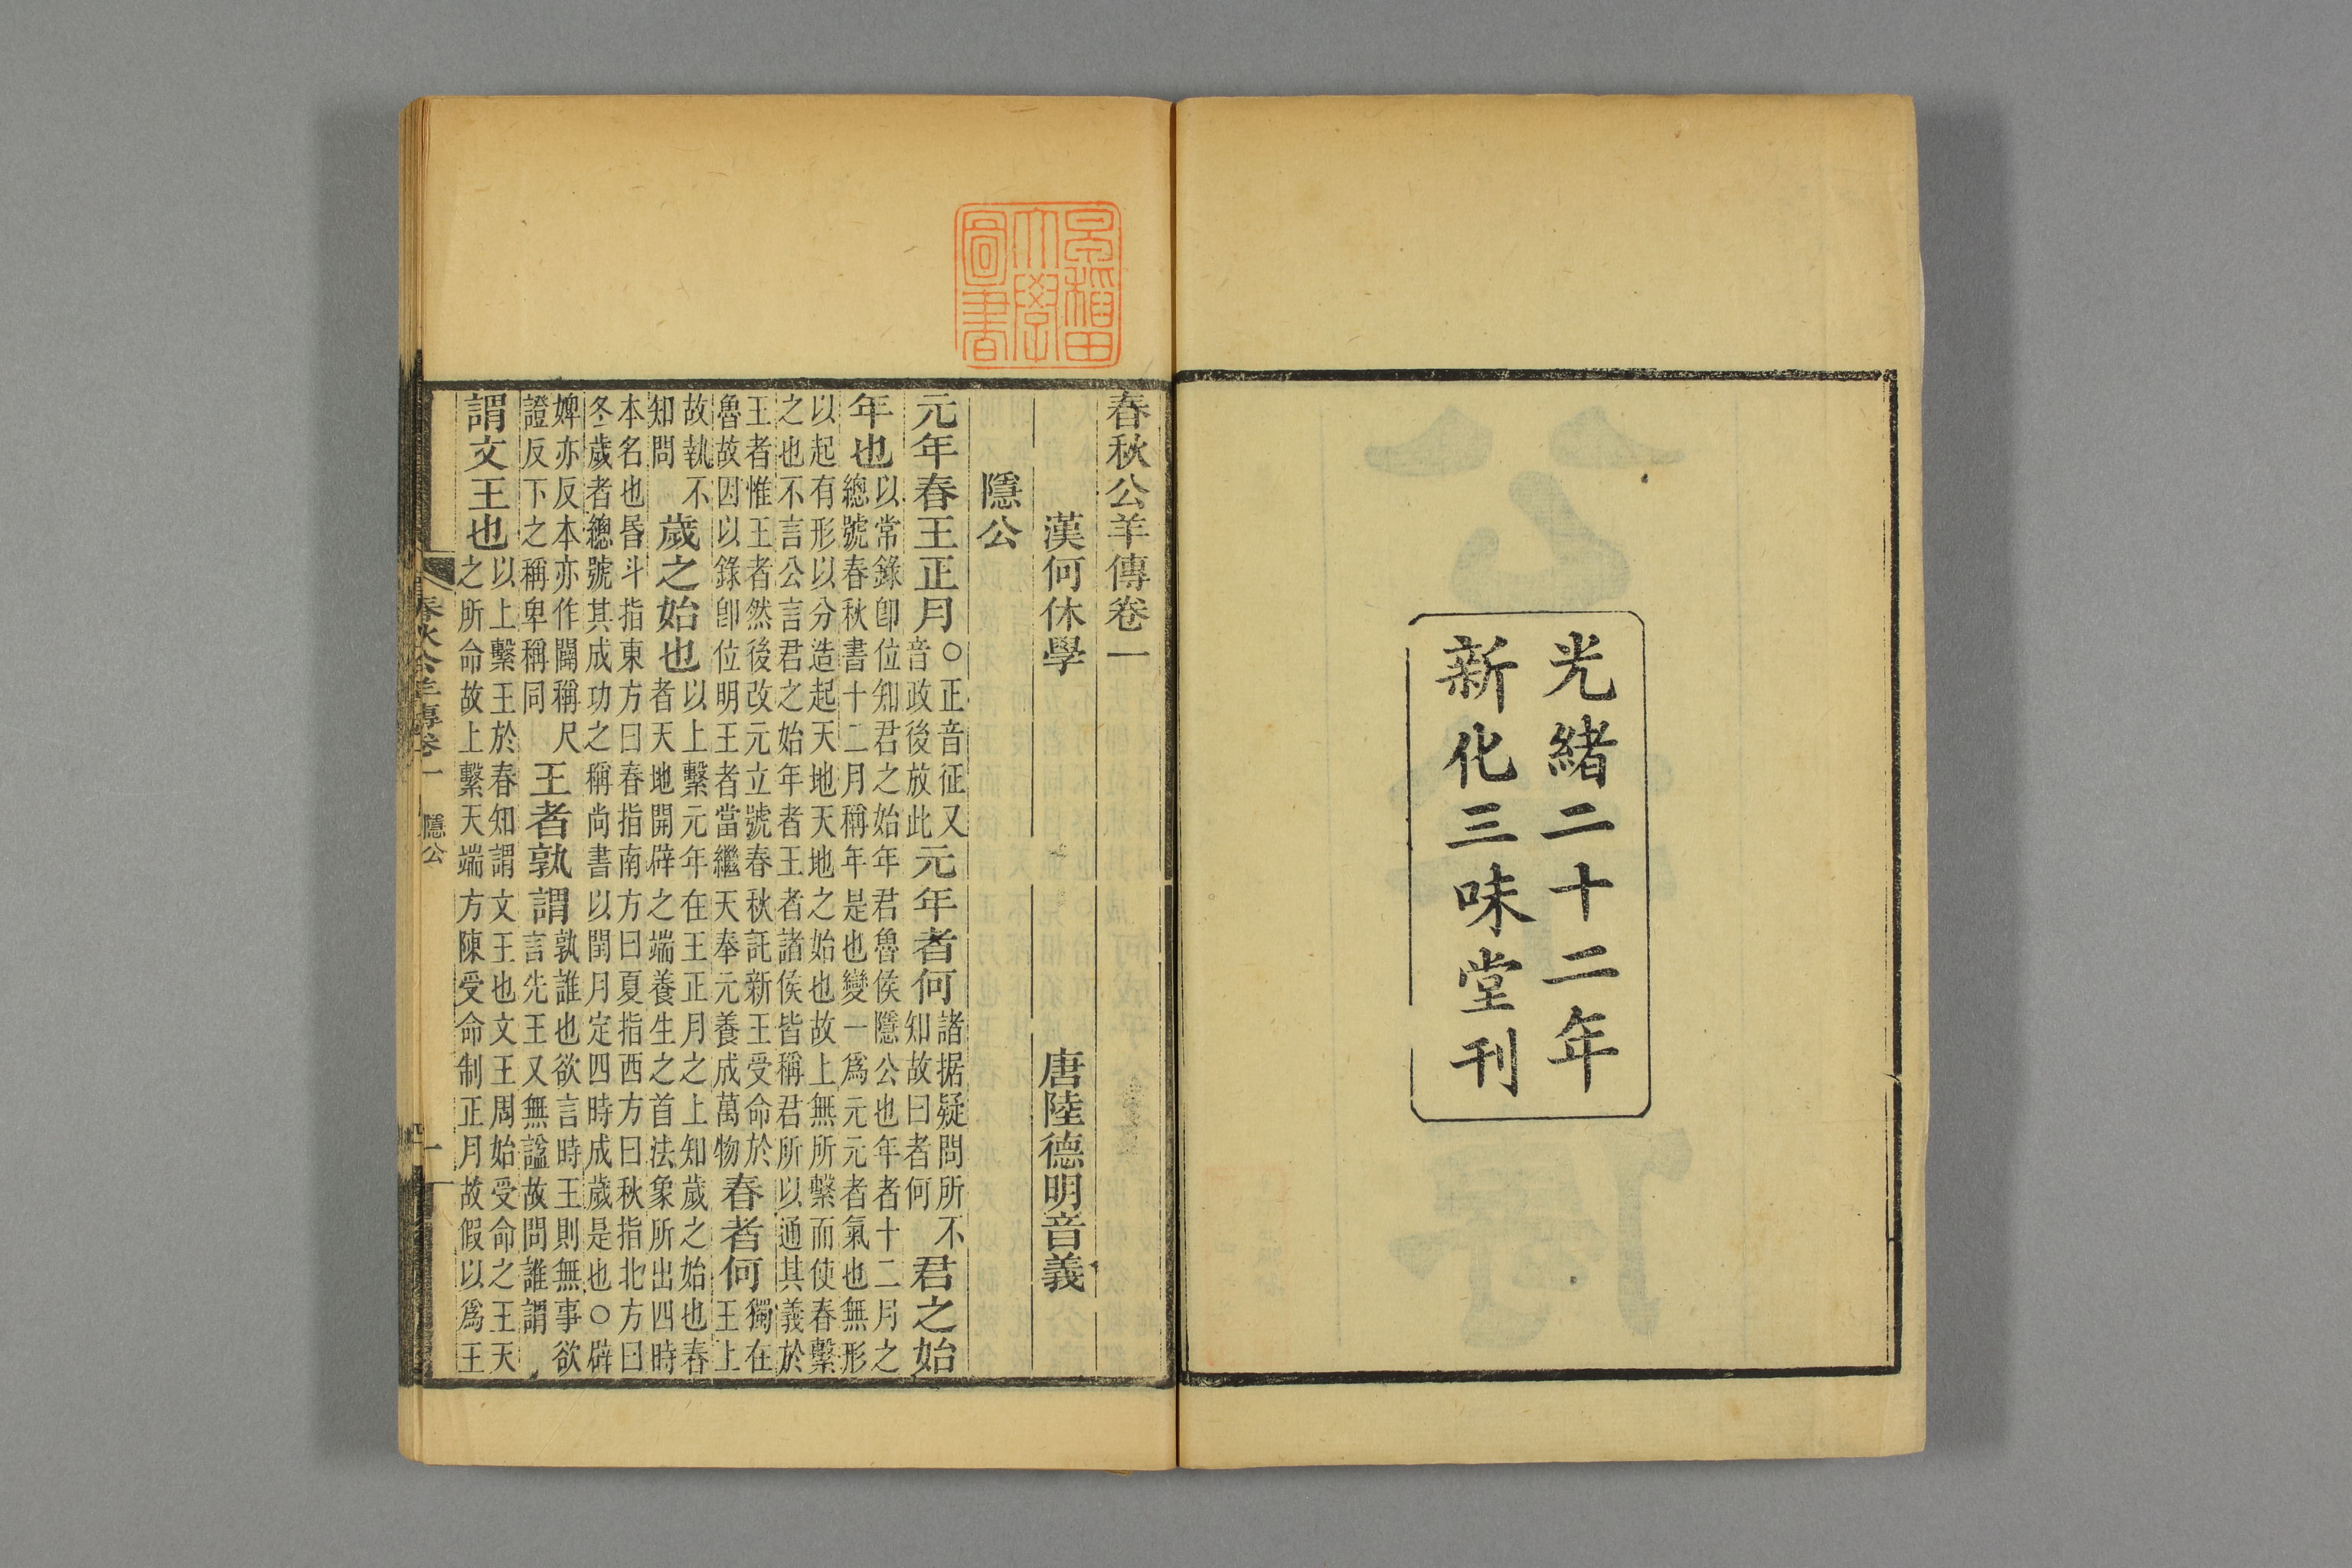 光緒二十二年
新化三味堂刊
早稲田大學圖書
春秋公羊傳卷一
漢何休學 唐陸德明音義
隱公
元年春王正月
○正音征又
音政後放此
元年者何
諸据疑問所不
知故曰者何
君之始
年也
以常錄卽位知君之始年君魯侯隱公也年者十二月之
總號春秋書十二月稱年是也變一爲元元者氣也無形
以起有形以分造起天地天地之始也故上無所繫而使春繫
之也不言公言君之始年者王者諸侯皆稱君所以通其義於
王者惟王者然後改元立號春秋託新王受命於
魯故因以錄卽位明王者當繼天奉元養成萬物
春者何
獨在
王上
故執不
知問
歲之始也
以上繫元年在王正月之上知歲之始也春
者天地開辟之端養生之首法象所出四時
本名也昏斗指東方曰春指南方曰夏指西方曰秋指北方曰
冬歲者總號其成功之稱尚書以閏月定四時成歲是也○辟
婢亦反本亦作闢稱尺
證反下之稱卑稱同
王者孰謂
孰誰也欲言時王則無事欲
言先王又無諡故問誰謂
謂文王也
以上繫王於春知謂文王也文王周始受命之王天
之所命故上繫天端方陳受命制正月故假以爲王
春秋公羊傳卷一 隱公 一